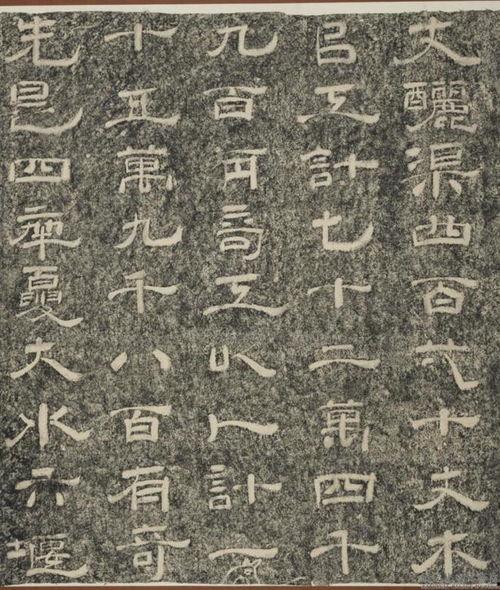 丈釃渠四百弍十丈木
㠯工計七十二萬四千
九百而奇工以人計一
十五萬九千八百有奇
先是四年夏大水堰